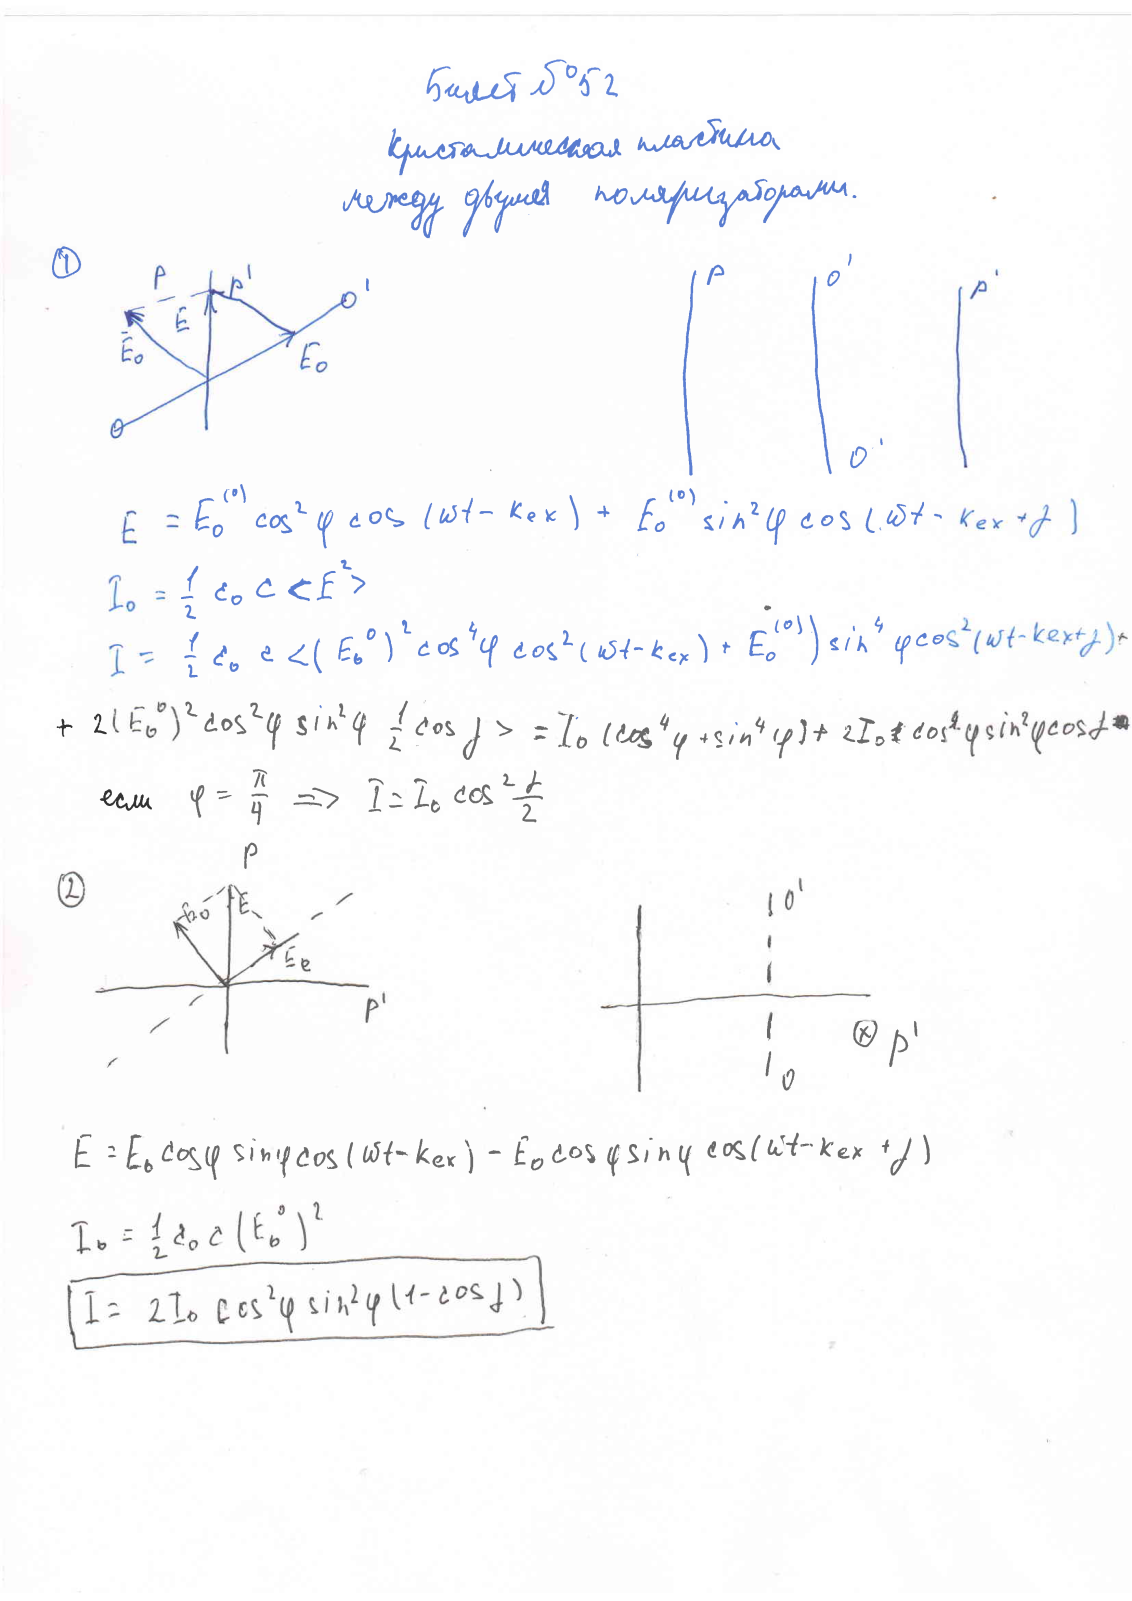 Билет №52
Кристаллическая пластина
между двумя поляризаторами.
①
P P' O'
E E₀ E₀
O
P O' P'
O'
E = E₀⁽⁰⁾ cos²φ cos(ωt - kex) + E₀⁽⁰⁾ sin²φ cos(ωt - kex + δ)
I₀ = 1/2 ε₀ c <E²>
I = 1/2 ε₀ c <(E₀⁰)² cos⁴φ cos²(ωt - kex) + E₀⁽⁰⁾) sin⁴φ cos²(ωt - kex + δ) +
+ 2(E₀⁰)² cos²φ sin²φ 1/2 cos δ > = I₀ (cos⁴φ + sin⁴φ) + 2I₀ cos²φ sin²φ cos δ
если φ = π/4 => I = I₀ cos² δ/2
②
P
E₀ E
Ee
P'
O'
P'
O
E = E₀ cosφ sinφ cos(ωt - kex) - E₀ cosφ sinφ cos(ωt - kex + δ)
I₀ = 1/2 ε₀ c (E₀⁰)²
I = 2I₀ cos²φ sin²φ (1 - cos δ)